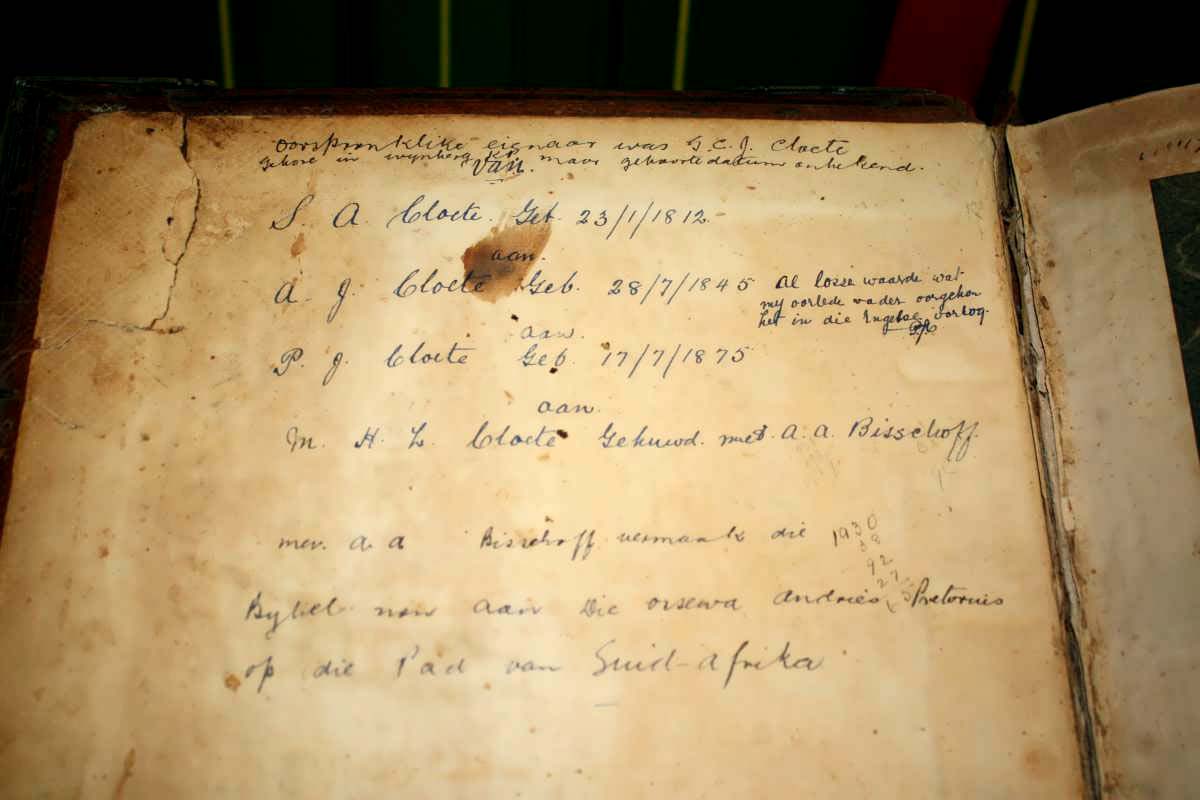 oorspronklike eignaar was G. C. J. Cloete
gebore in wynberg KP. maar geboortedatum onbekend.
Van.
S. A. Cloete. Geb. 23/1/1812
aan.
A. J. Cloete Geb. 28/7/1845
Al losse waarde wat
my oorlede vader oorgehou
het in die Engelse oorlog.
PJC
aan.
P. J. Cloete Geb. 17/7/1875
aan.
M. H. L. Cloete Gehuwd. met. A. A. Bisschoff.
mev. A. A Bisschoff vermaak die
1930
38
92
27
Bybel nou aan Die orsewa Andries Pretorius
op die Pad van Suid-Afrika